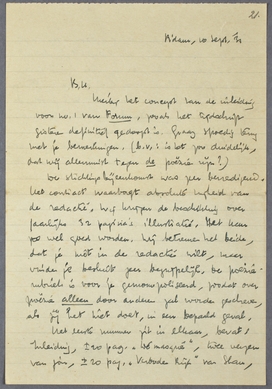 21.
A'dam, 10 Sept. '31
B.M.
Hierbij het concept van de inleiding
voor no. 1 van Forum, zooals het tijdschrift
gisteren definitief gedoopt is. Graag spoedig terug
met je bemerkingen. (b.v.: is het zoo duidelijk,
dat wij allerminst tegen de poëzie zijn?)
De stichtingsbijeenkomst was zeer bevredigend.
Het contract waarborgt absolute vrijheid van
de redactie, wij krijgen de beschikking over
jaarlijks 32 pagina's illustratie. Het kan
zoo wel goed worden. Wij betreuren het beide,
dat je niet in de redactie wilt, maar
vinden je besluit zeer begrijpelijk. De poëzie-
rubriek is voor je gemonopoliseerd, zoodat over
poëzie alleen door anderen zal worden geschreven,
als jij het niet doet, in een bepaald geval.
Het eerste nummer zit in elkaar, bevat:
Inleiding, ± 20 pag. twee verzen
van jou, ± 20 pag. van Slau,